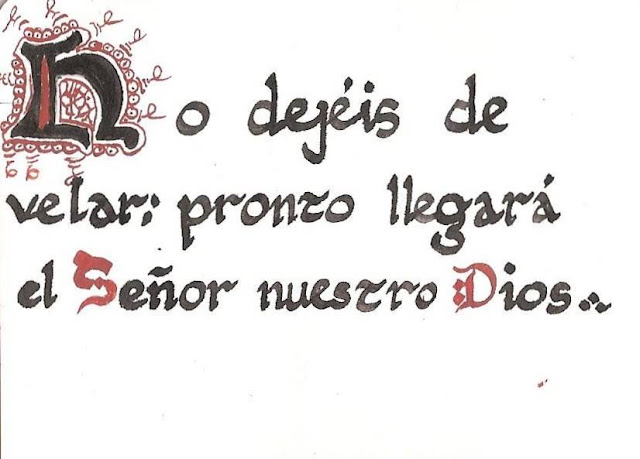 No dejéis de
velar: pronto llegará
el Señor nuestro Dios.